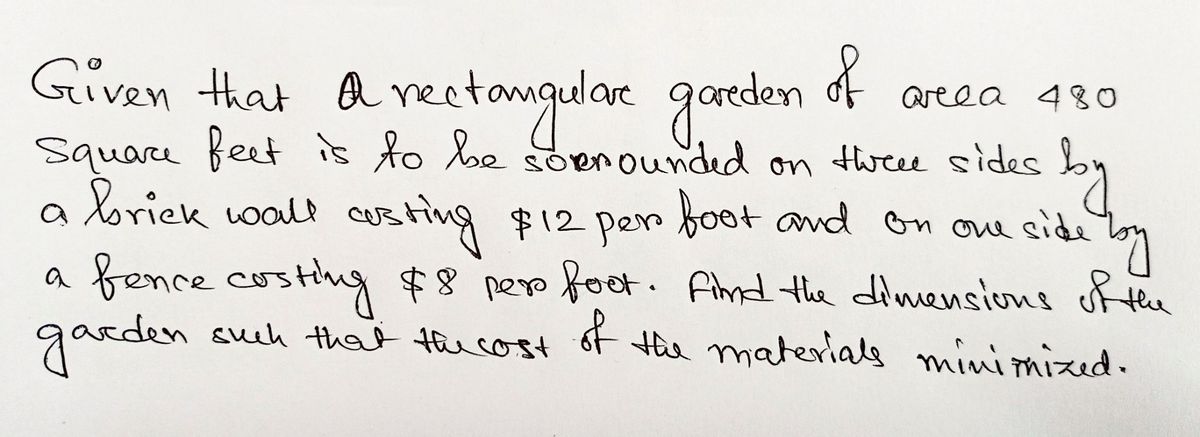 Given that a rectangular garden of area 480
square feet is to be sorrounded on three sides by
a brick wall costing $12 per foot and on one side by
a fence costing $8 per foot. Find the dimensions of the
garden such that the cost of the materials minimized.